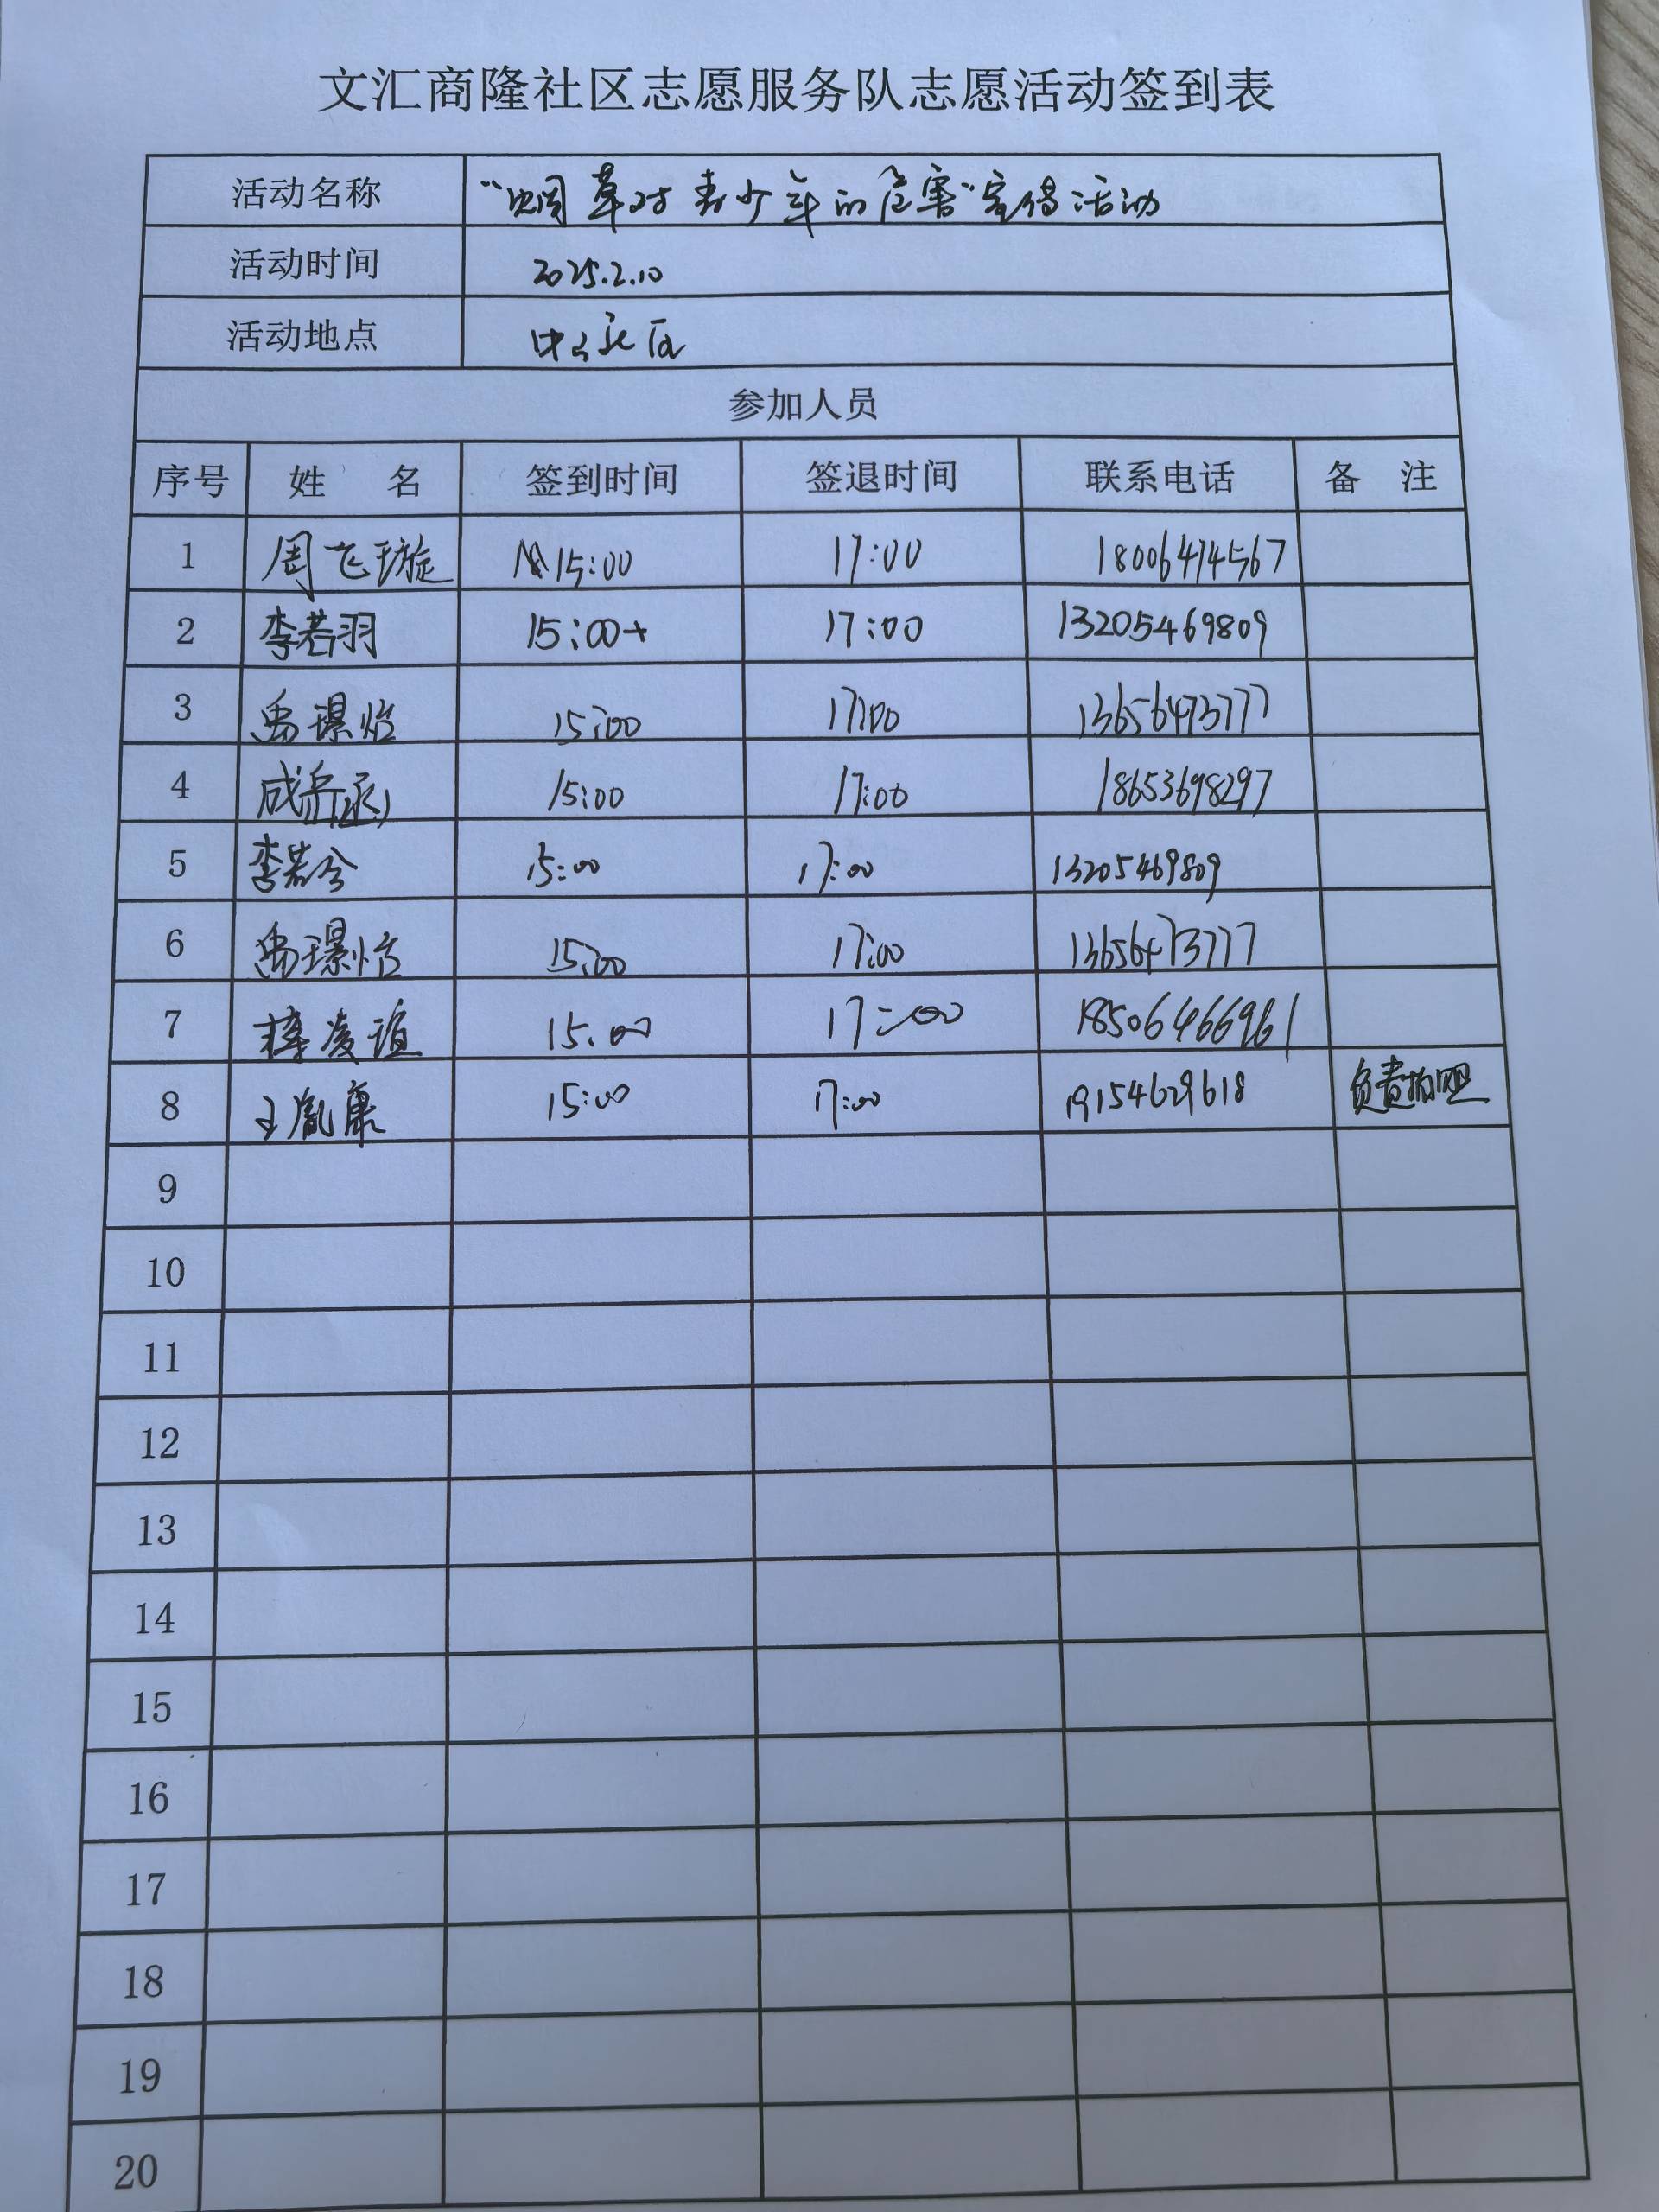 文汇商隆社区志愿服务队志愿活动签到表
活动名称 “烟草对青少年的危害”宣传活动
活动时间 2025.2.10
活动地点
参加人员
序号 姓 名 签到时间 签退时间 联系电话 备 注
1 周飞璇 15:00 17:00 18006474567
2 李若羽 15:00 17:00 13205469809
3 禹璟怡 15:00 17:00 13656473777
4 成 15:00 17:00 18653698297
5 李若兮 15:00 17:00 13205469809
6 禹璟怡 15:00 17:00 13656473777
7 凌谊 15:00 17:00
8 王胤康 15:00 17:00 19154629618 负责拍照
9
10
11
12
13
14
15
16
17
18
19
20